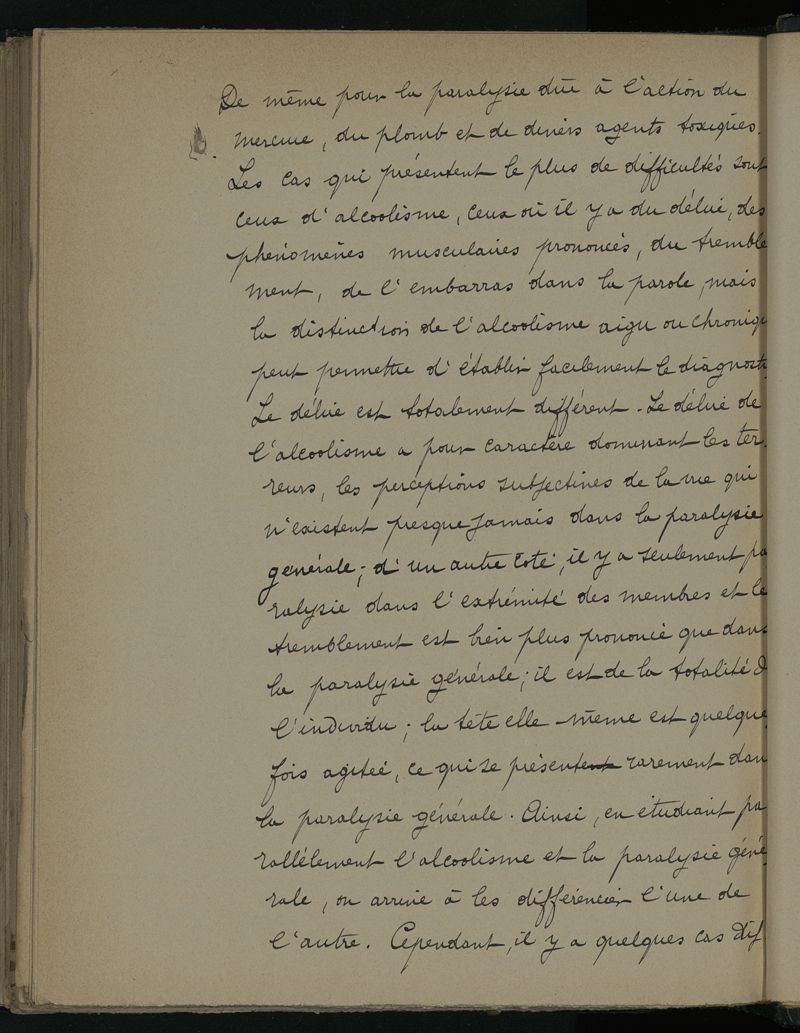 De même pour la paralysie dûe à l'action du
mercure, du plomb et de divers agents toxiques.
Les cas qui présentent le plus de difficultés sont
ceux d'alcoolisme, ceux où il y a du délire, des
phénomènes musculaires prononcés, du tremble
ment, de l'embarras dans la parole, mais
la distinction de l'alcoolisme aigu ou chroniqu
peut permettre d'établir facilement le diagnosti
Le délire est totalement différent. Le délire de
l'alcoolisme a pour caractère dominant les ter
reurs, les perceptions subjectives de la vue qui
n'existent presque jamais dans la paralysie
générale; d'un autre côté, il y a seulement pa
ralysie dans l'extrémité des membres et le
tremblement est bien plus prononcé que dans
la paralysie générale; il est de la totalité d
l'individu; la tête elle-même est quelque
fois agitée, ce qui se présente rarement dan
la paralysie générale. Ainsi, en étudiant pa
rallèlement l'alcoolisme et la paralysie géné
rale, on arrive à les différencier l'une de
l'autre. Cependant, il y a quelques cas dif